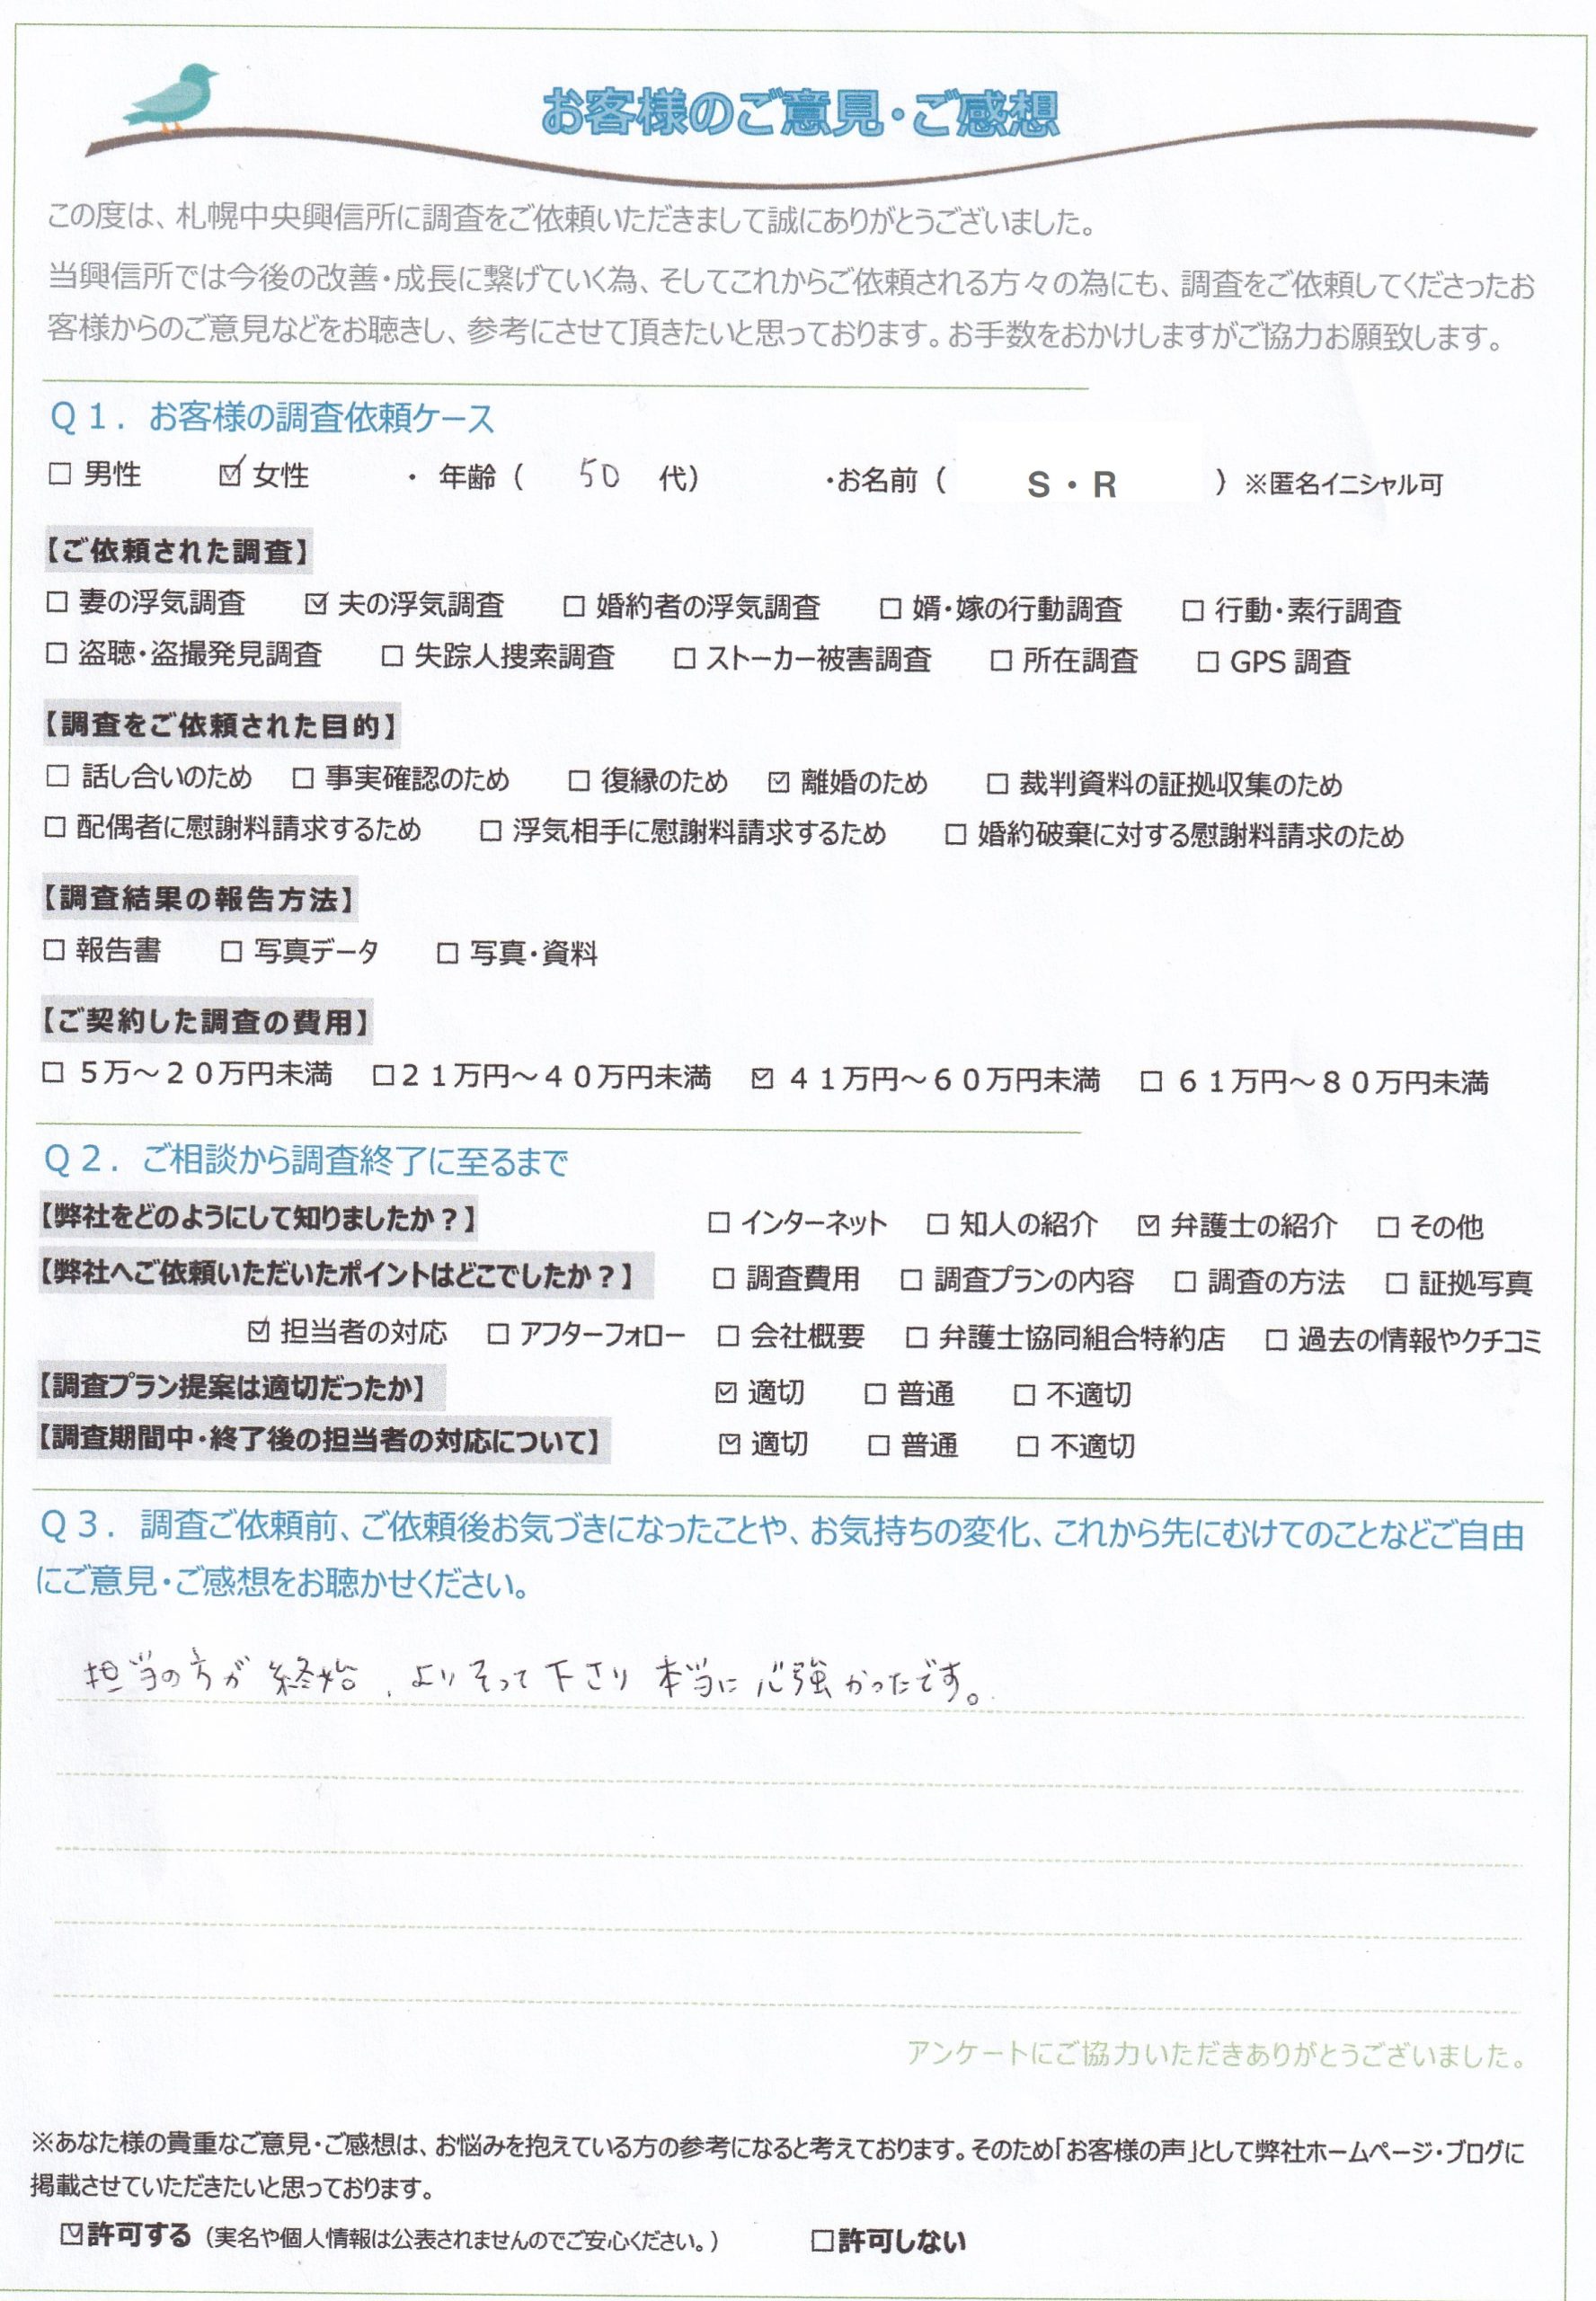 お客様のご意見・ご感想
この度は、札幌中央興信所に調査をご依頼いただきまして誠にありがとうございました。
当興信所では今後の改善・成長に繋げていく為、そしてこれからご依頼される方々の為にも、調査をご依頼してくださったお
客様からのご意見などをお聴きし、参考にさせて頂きたいと思っております。お手数をおかけしますがご協力お願致します。
Q1. お客様の調査依頼ケース
□ 男性 ☑ 女性 ・ 年齢（ 50 代） ・お名前（ S・R ）※匿名イニシャル可
【ご依頼された調査】
□ 妻の浮気調査 ☑ 夫の浮気調査 □ 婚約者の浮気調査 □ 婿・嫁の行動調査 □ 行動・素行調査
□ 盗聴・盗撮発見調査 □ 失踪人捜索調査 □ ストーカー被害調査 □ 所在調査 □ GPS 調査
【調査をご依頼された目的】
□ 話し合いのため □ 事実確認のため □ 復縁のため ☑ 離婚のため □ 裁判資料の証拠収集のため
□ 配偶者に慰謝料請求するため □ 浮気相手に慰謝料請求するため □ 婚約破棄に対する慰謝料請求のため
【調査結果の報告方法】
□ 報告書 □ 写真データ □ 写真・資料
【ご契約した調査の費用】
□ 5万～20万円未満 □21万円～40万円未満 ☑ 41万円～60万円未満 □ 61万円～80万円未満
Q2. ご相談から調査終了に至るまで
【弊社をどのようにして知りましたか？】 □ インターネット □ 知人の紹介 ☑ 弁護士の紹介 □ その他
【弊社へご依頼いただいたポイントはどこでしたか？】 □ 調査費用 □ 調査プランの内容 □ 調査の方法 □ 証拠写真
☑ 担当者の対応 □ アフターフォロー □ 会社概要 □ 弁護士協同組合特約店 □ 過去の情報やクチコミ
【調査プラン提案は適切だったか】 ☑ 適切 □ 普通 □ 不適切
【調査期間中・終了後の担当者の対応について】 ☑ 適切 □ 普通 □ 不適切
Q3. 調査ご依頼前、ご依頼後お気づきになったことや、お気持ちの変化、これから先にむけてのことなどご自由
にご意見・ご感想をお聴かせください。
担当の方が終始、よりそって下さり本当に心強かったです。
アンケートにご協力いただきありがとうございました。
※あなた様の貴重なご意見・ご感想は、お悩みを抱えている方の参考になると考えております。そのため「お客様の声」として弊社ホームページ・ブログに
掲載させていただきたいと思っております。
☑許可する（実名や個人情報は公表されませんのでご安心ください。） □許可しない